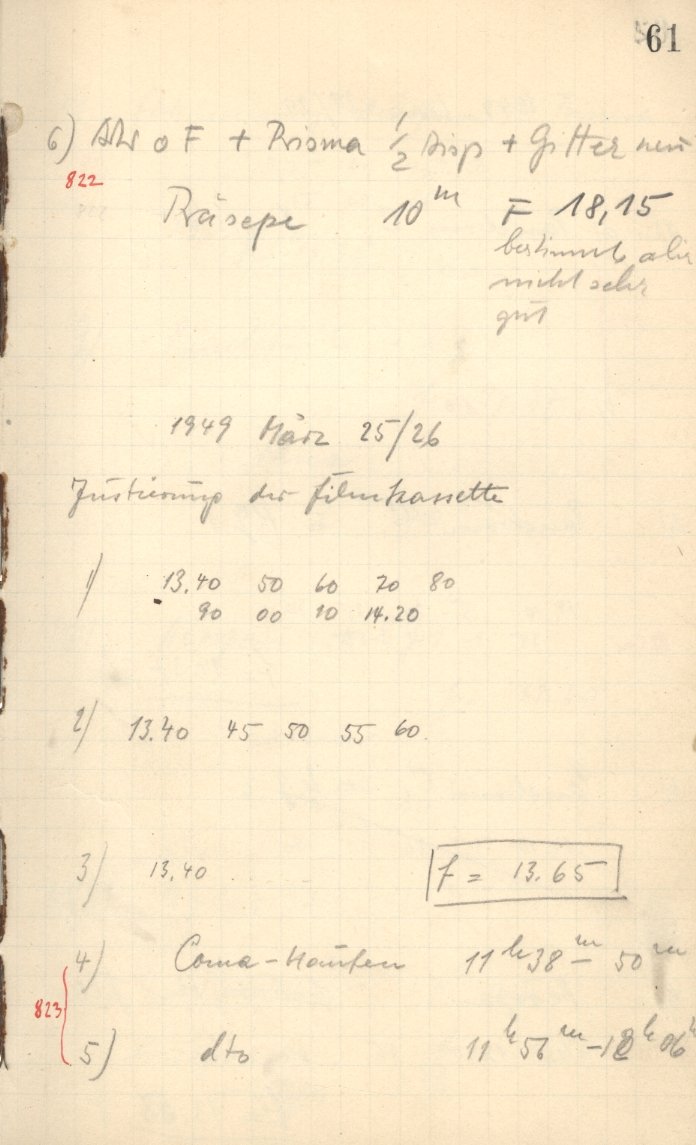 61
6) o F + Prisma 1/2 Disp + Gitter neu
822
Präsepe 10^m F 18,15
bestimmt aber
nicht sehr
gut
1949 März 25/26
Justierung der Filmkassette
1) 13.40 50 60 70 80
90 00 10 14.20
2) 13.40 45 50 55 60.
3) 13.40
f = 13.65
4) Coma-Haufen 11^h 38^m – 50^m
823
5) dto 11^h 56^m – 12^h 06